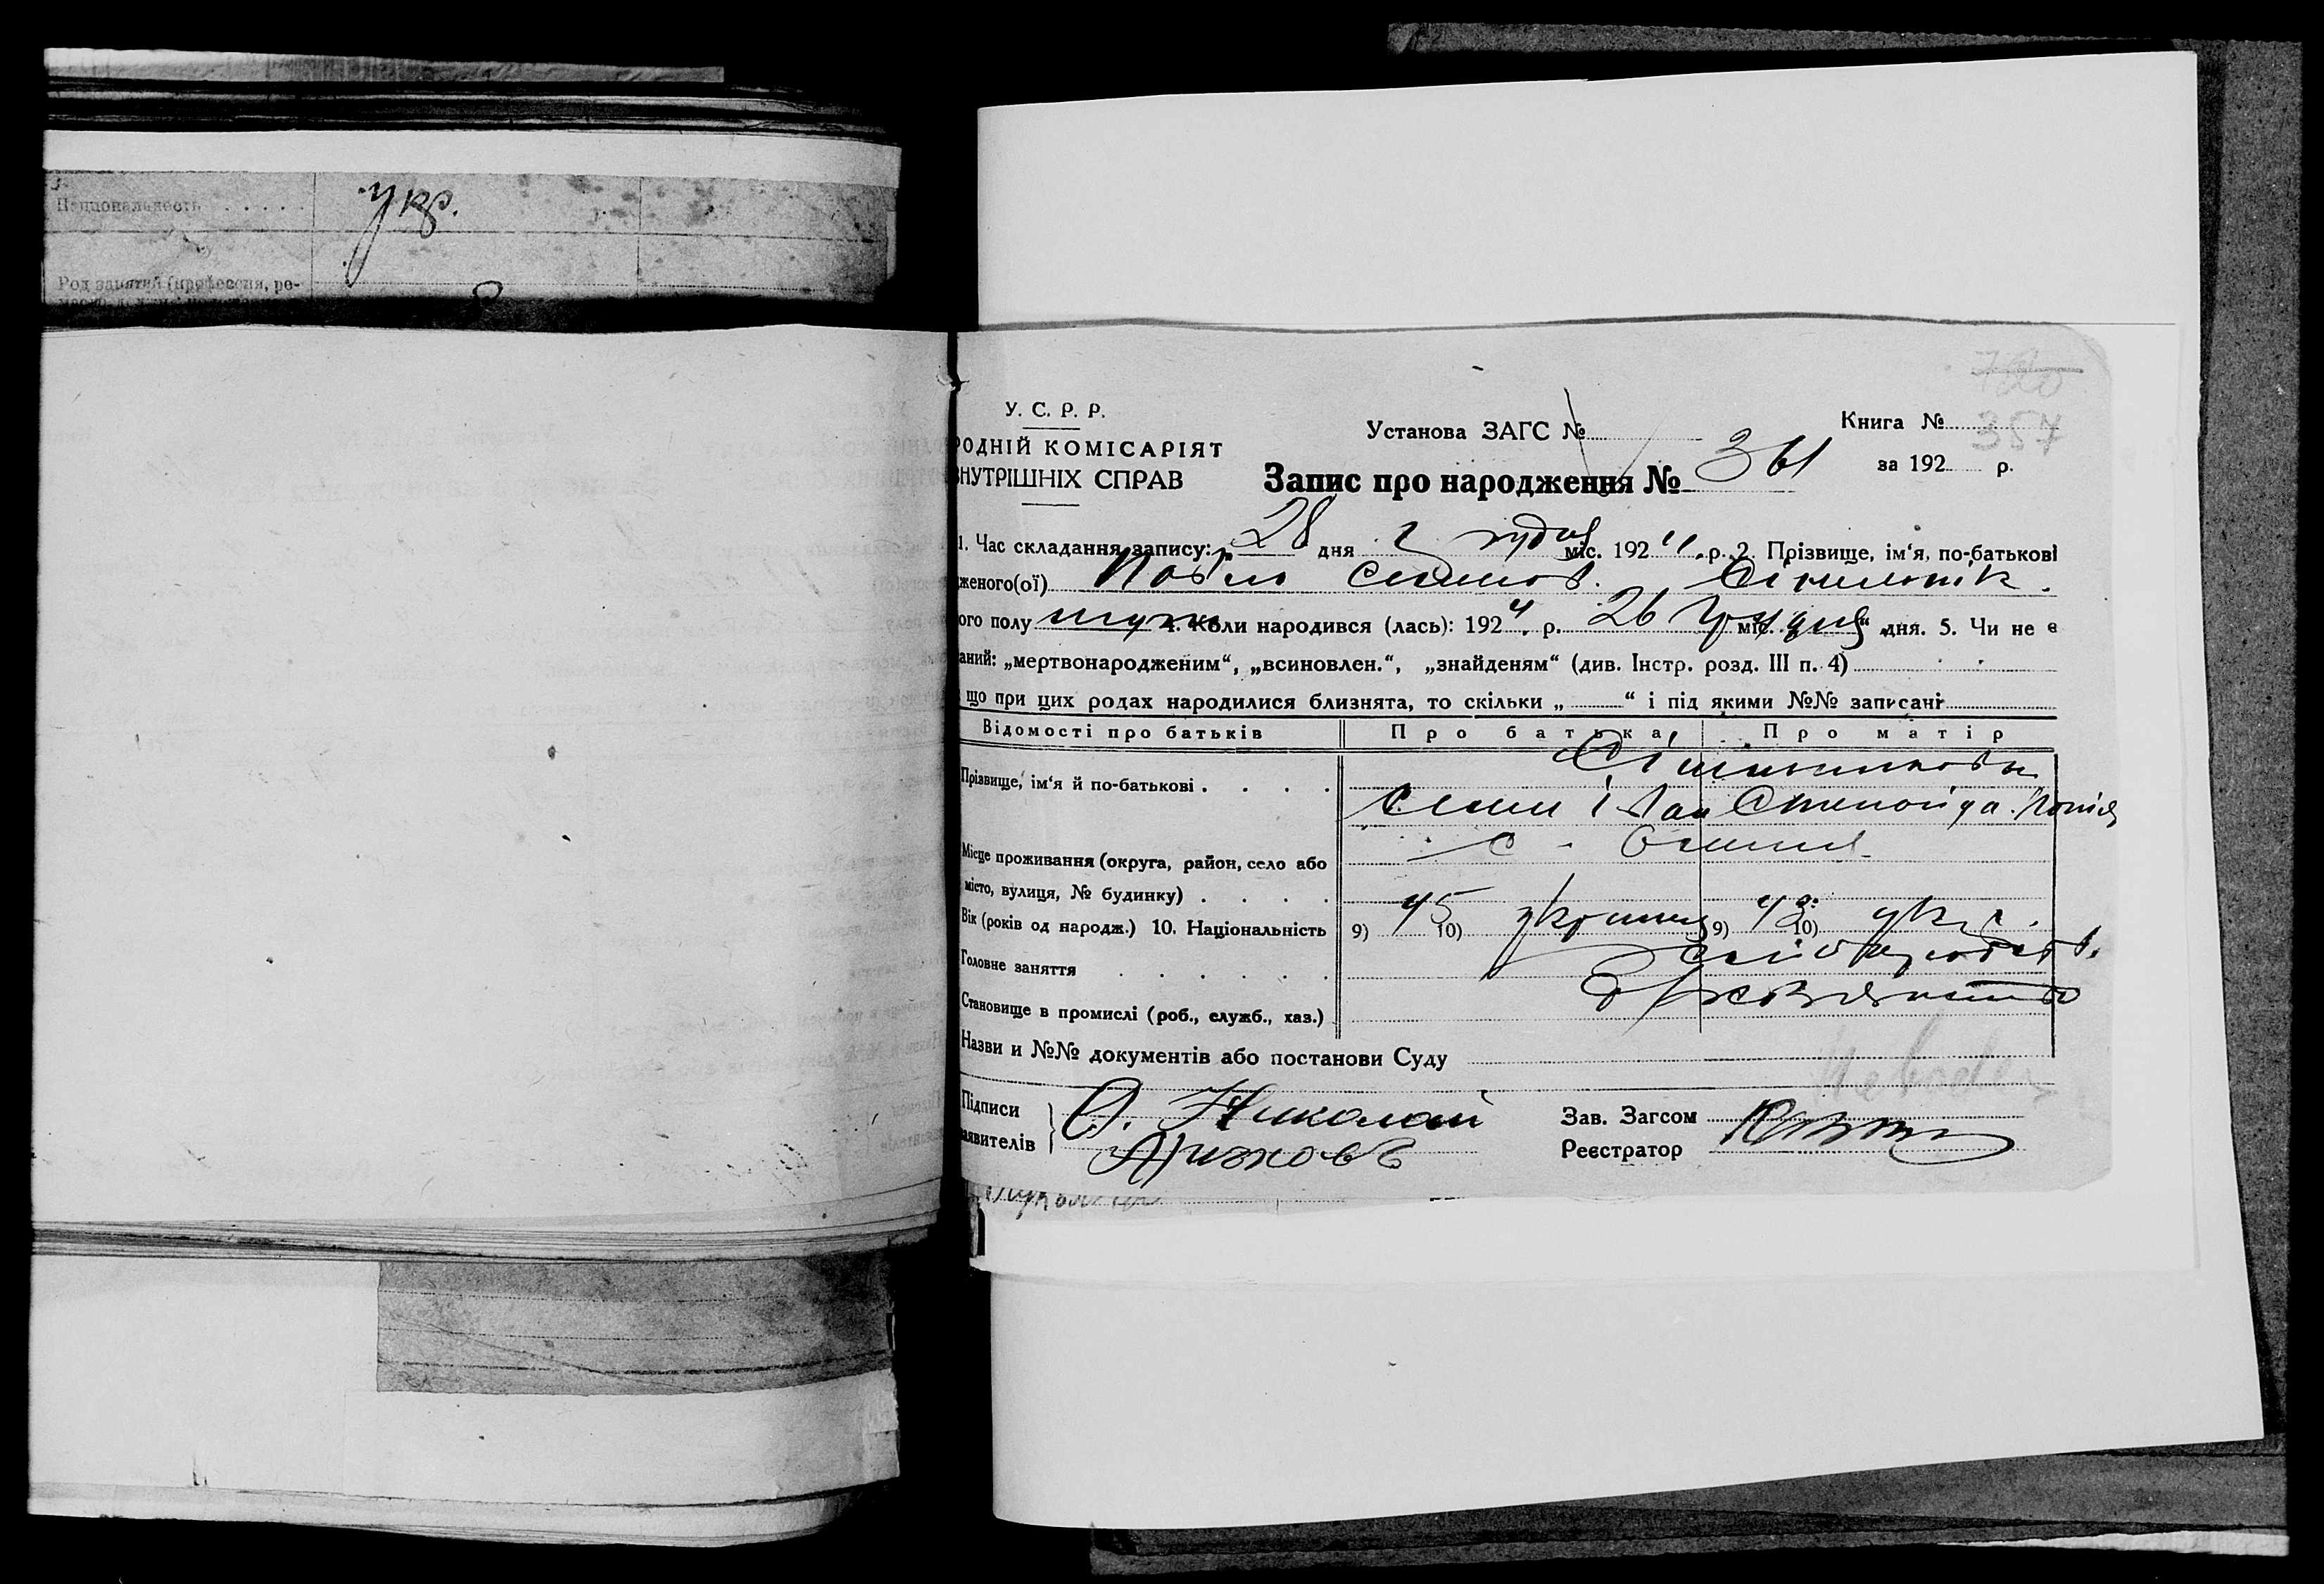 Национальность
укр.
Род занятий (профессия, ре-
720
У. С. Р. Р.
РОДНІЙ КОМІСАРІЯТ
ВНУТРІШНІХ СПРАВ
Установа ЗАГС №
Книга №
357
Запис про народження № 361
за 192 р.
1. Час складання запису: 28 дня грудня міс. 1924 р. 2. Прізвище, ім'я, по-батькові
женого(ої) Павло Семенов.
ого полу муж. 4. Коли народився (лась): 1924. р. 26 грудня міс. дня. 5. Чи не є
аний: „мертвонародженим“, „всиновлен.“, „знайденям“ (див. Інстр. розд. III п. 4)
що при цих родах народилися близнята, то скільки „ “ і під якими №№ записані
Відомості про батьків Про батька Про матір
Прізвище, ім'я й по-батькові
Семен Іван Степанида
Місце проживання (округа, район, село або
с.
місто, вулиця, № будинку)
Вік (років од народж.) 10. Національність 9) 45 10) україн 9) 43 10) укр.
Головне заняття
Становище в промислі (роб., служб., хаз.)
Назви и №№ документів або постанови Суду
Підписи
аявителів
О. Николай
Зав. Загсом
Реєстратор